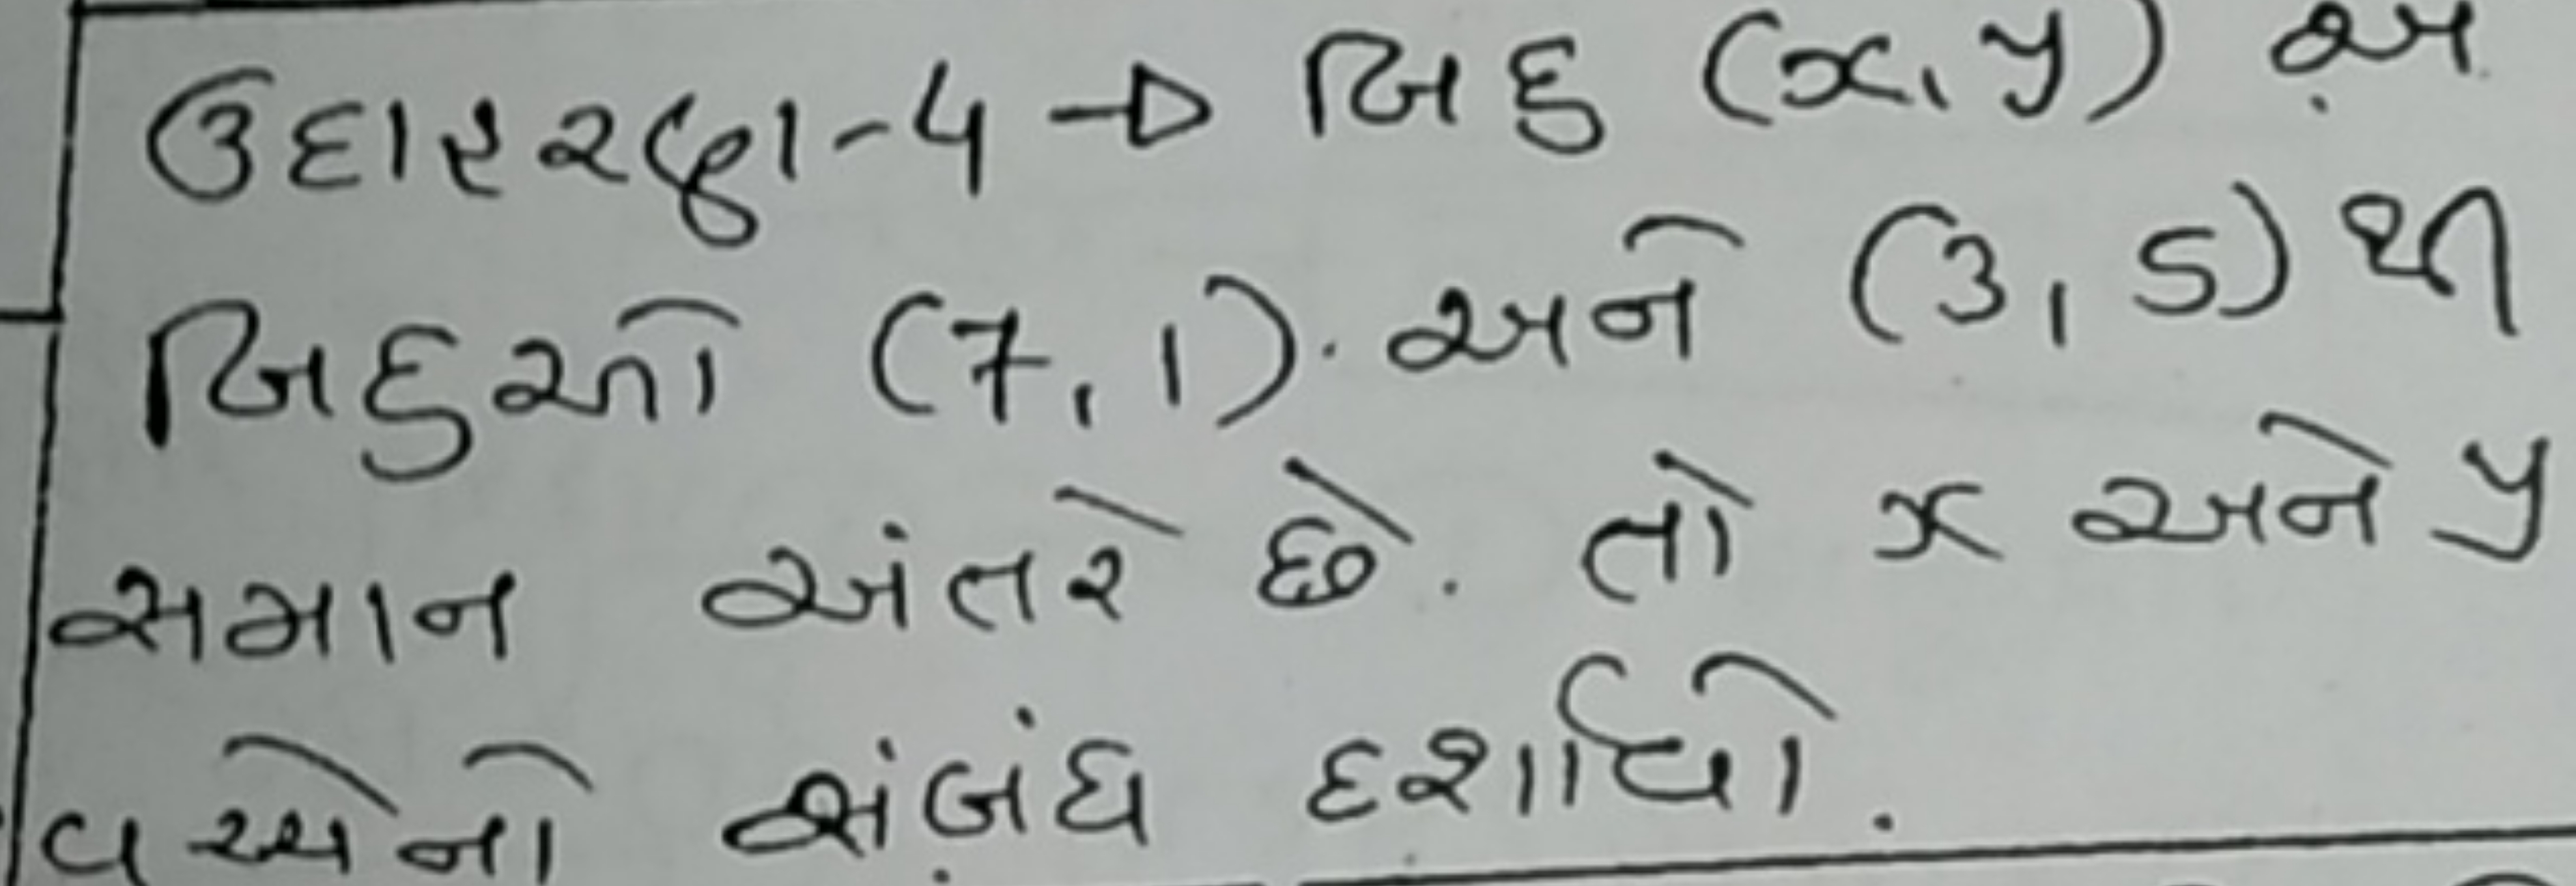 ઉદાહરણ-4 → બિંદુ (x, y) એ
બિંદુઓ (7, 1) અને (3, 5) થી
સમાન અંતરે છે. તો x અને y
વચ્ચેનો સંબંધ દર્શાવો.